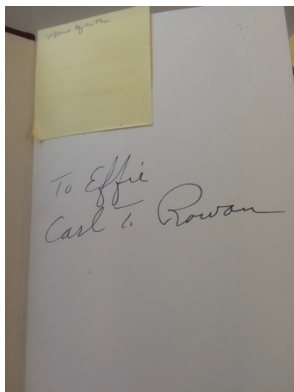 To Effie
Carl T. Rowan